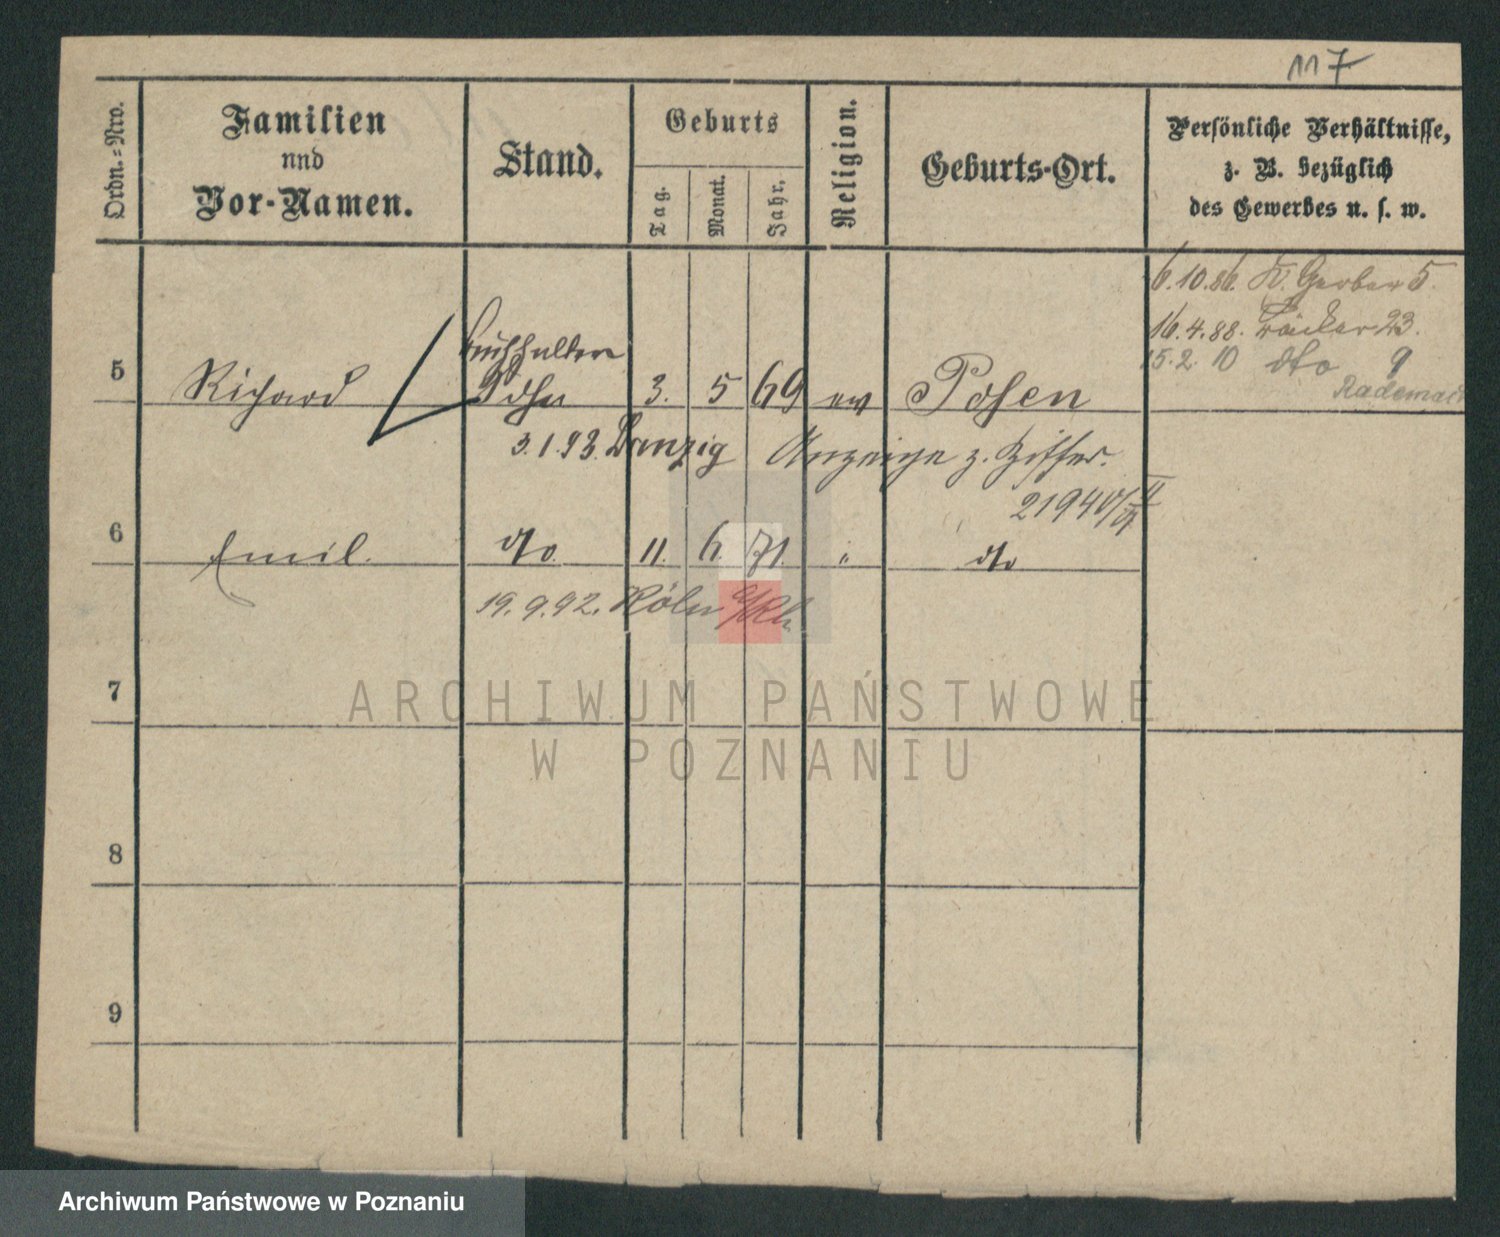 117
Ordn.-Nro.
Familien
und
Vor-Namen.
Stand.
Geburts
Tag.
Monat.
Jahr.
Religion.
Geburts-Ort.
Persönliche Verhältnisse,
z. B. bezüglich
des Gewerbes u. s. w.
6.10.86. Gr. Gerber 5.
16.4.88. Bäcker 23.
15.2 10 dto 9
Rademach
Buchhalter
5 Richard Sohn 3. 5 69 ev Posen
3.1.93. Danzig Anzeige z. Ziffer.
21940/
6 Emil. dto 11. 6. 71. " dto
19.9.92. Köln a/Rh.
7
8
9
ARCHIWUM PAŃSTWOWE
W POZNANIU
Archiwum Państwowe w Poznaniu